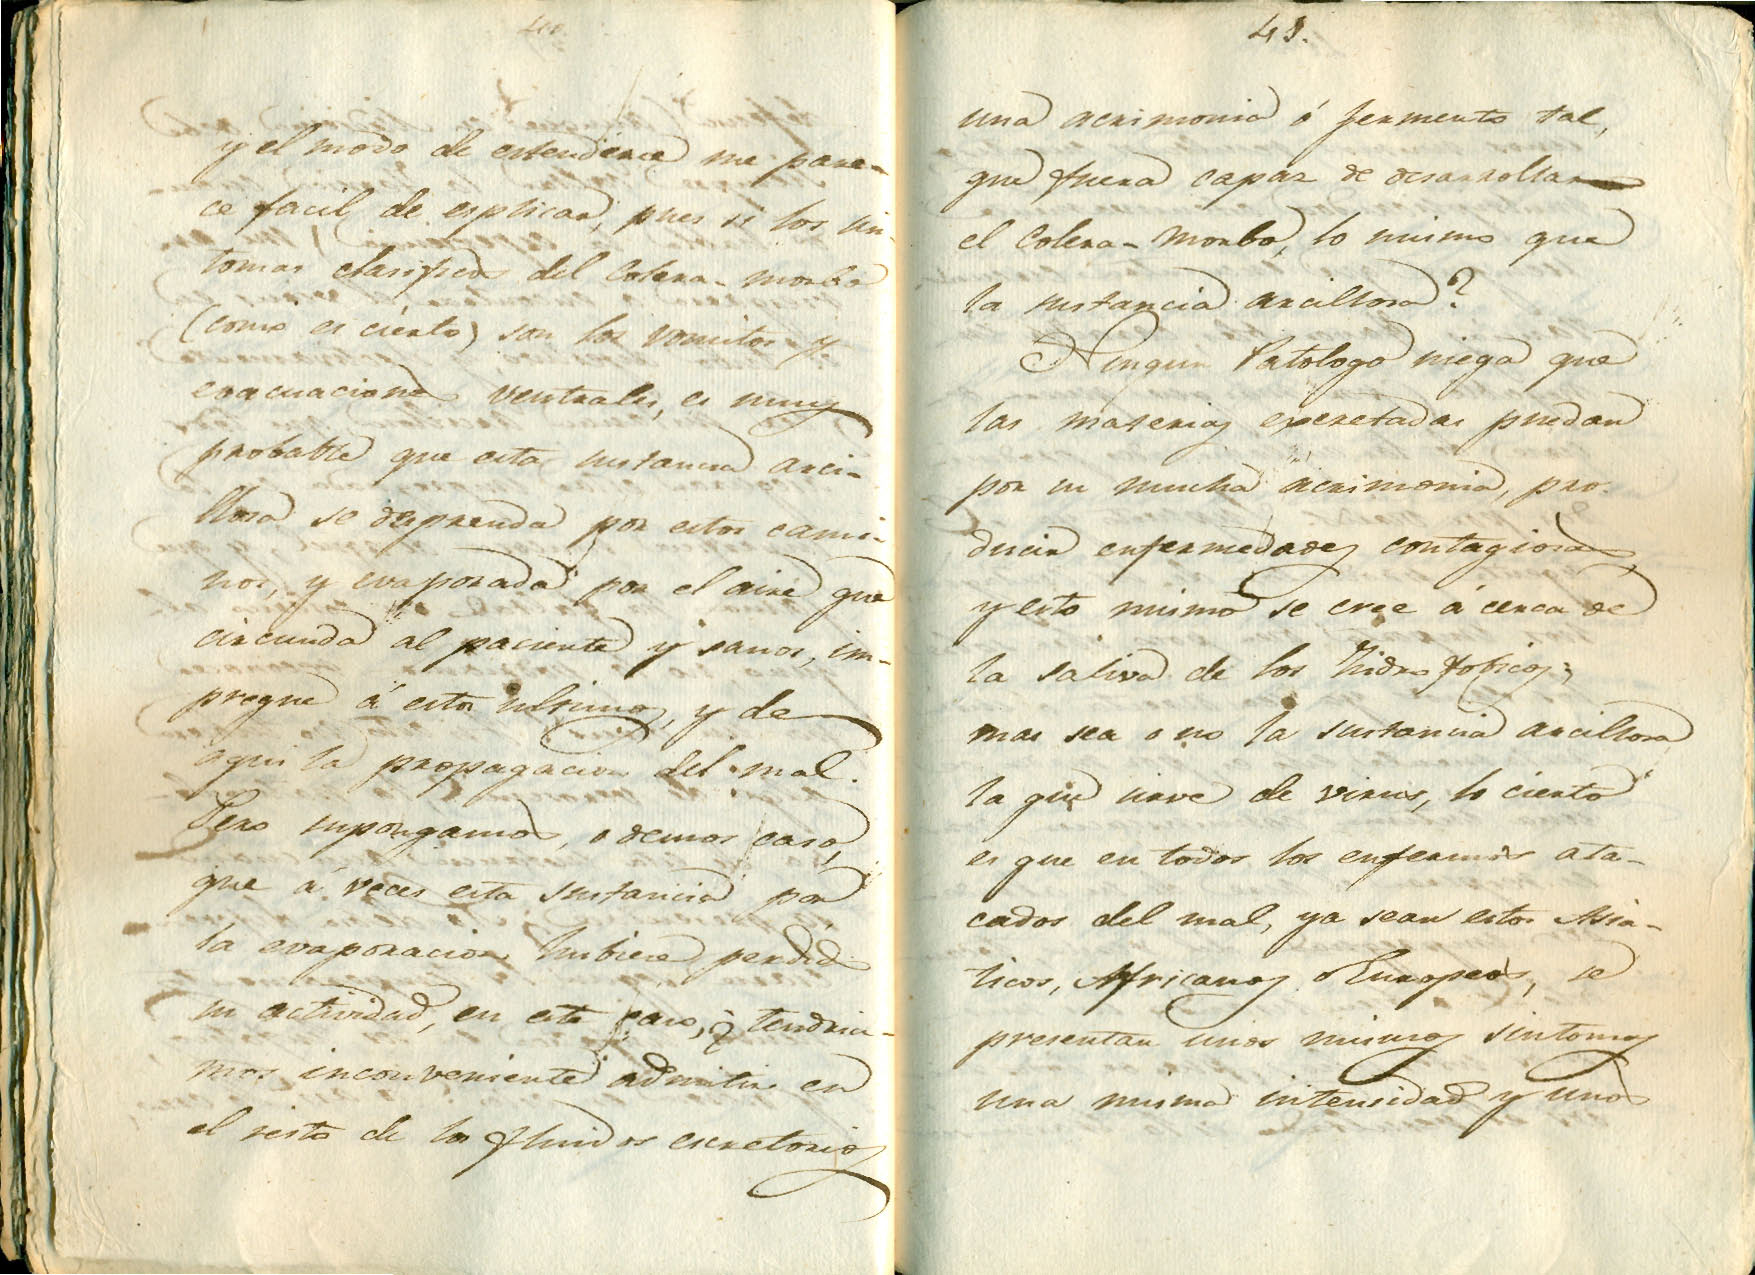 40.
y el modo de estenderce me pare-
ce facil de esplicar, pues si los sin-
tomas clasificos del Colera-morbo
(como es cierto) son los vomitos y
evacuaciones ventrales, es muy
probable que esta sustancia arci-
llosa se desprenda por estos cami-
nos, y evaporada por el aire que
circunda al paciente y sanos, im-
pregne á estos ultimos, y de
aqui la propagacion del mal.
Pero supongamos, o demos caso,
que á veces esta sustancia por
la evaporacion hubiese perdido
su actividad, en este caso, ¿ tendria-
mos inconveniente admitir en
el resto de los fluidos escretorios
41.
una acrimonia ó fermento tal,
que fuera capaz de desarrollar
el Colera-Morbo, lo mismo que
la sustancia arcillosa?
Ningun Patologo niega que
las materias escretadas puedan
por su mucha acrimonia, pro-
ducir enfermedades contagiosas,
y esto mismo se cree á cerca de
la saliva de los hidrofobicos;
mas sea o no la sustancia arcillosa
la que sirve de virus, lo cierto
es que en todos los enfermos ata-
cados del mal, ya sean estos Asia-
ticos, Africanos o Europeos, se
presentan unos mismos sintomas
una misma intensidad y unos